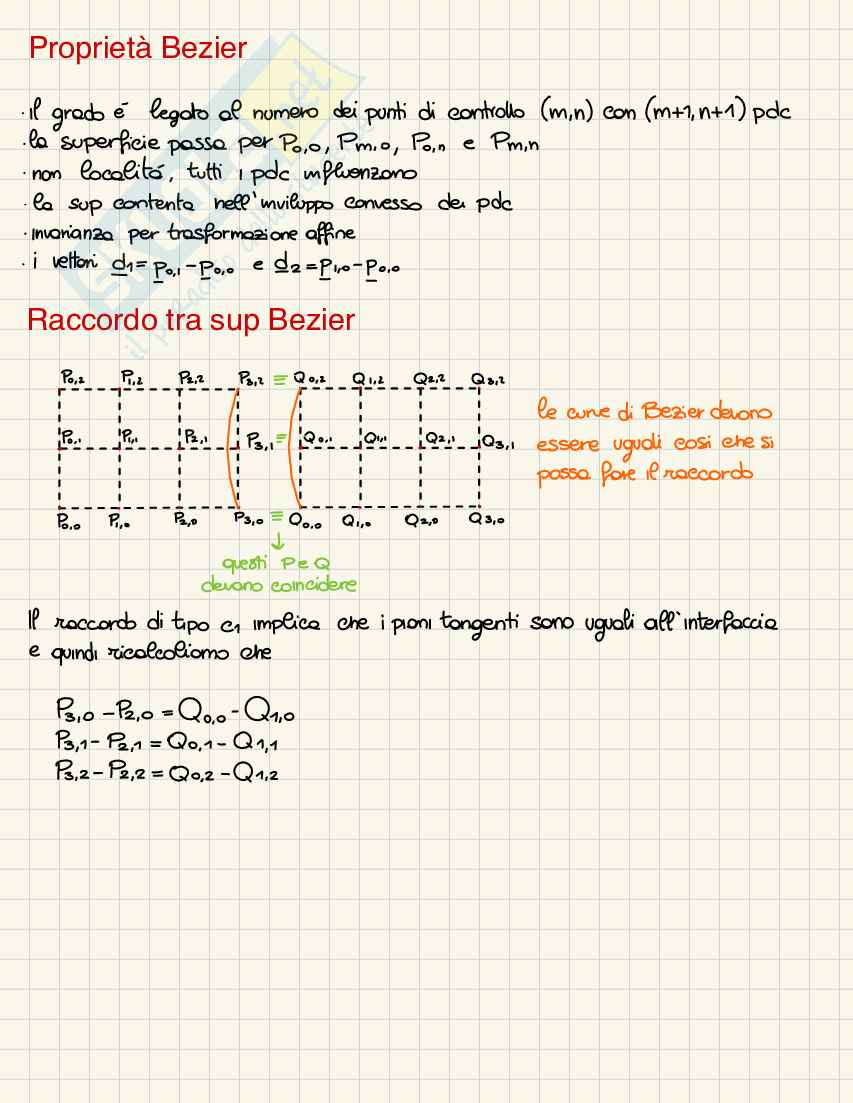 Proprietà Bezier
· il grado é legato al numero dei punti di controllo (m,n) con (m+1,n+1) pdc
· la superficie passa per P0,0, Pm,0, P0,n e Pm,n
· non localitá, tutti i pdc influenzano
· la sup contenta nell'inviluppo convesso dei pdc
· invarianza per trasformazione affine
· i vettori d1 = P0,1 - P0,0 e d2 = P1,0 - P0,0
Raccordo tra sup Bezier
P0,2 P1,2 P2,2 P3,2 ≡ Q0,2 Q1,2 Q2,2 Q3,2
P0,1 P1,1 P2,1 P3,1 ≡ Q0,1 Q1,1 Q2,1 Q3,1
P0,0 P1,0 P2,0 P3,0 ≡ Q0,0 Q1,0 Q2,0 Q3,0
le curve di Bezier devono
essere uguali cosi che si
possa fare il raccordo
↓
questi P e Q
devono coincidere
Il raccordo di tipo c1 implica che i piani tangenti sono uguali all'interfaccia
e quindi ricalcoliamo che
P3,0 - P2,0 = Q0,0 - Q1,0
P3,1 - P2,1 = Q0,1 - Q1,1
P3,2 - P2,2 = Q0,2 - Q1,2